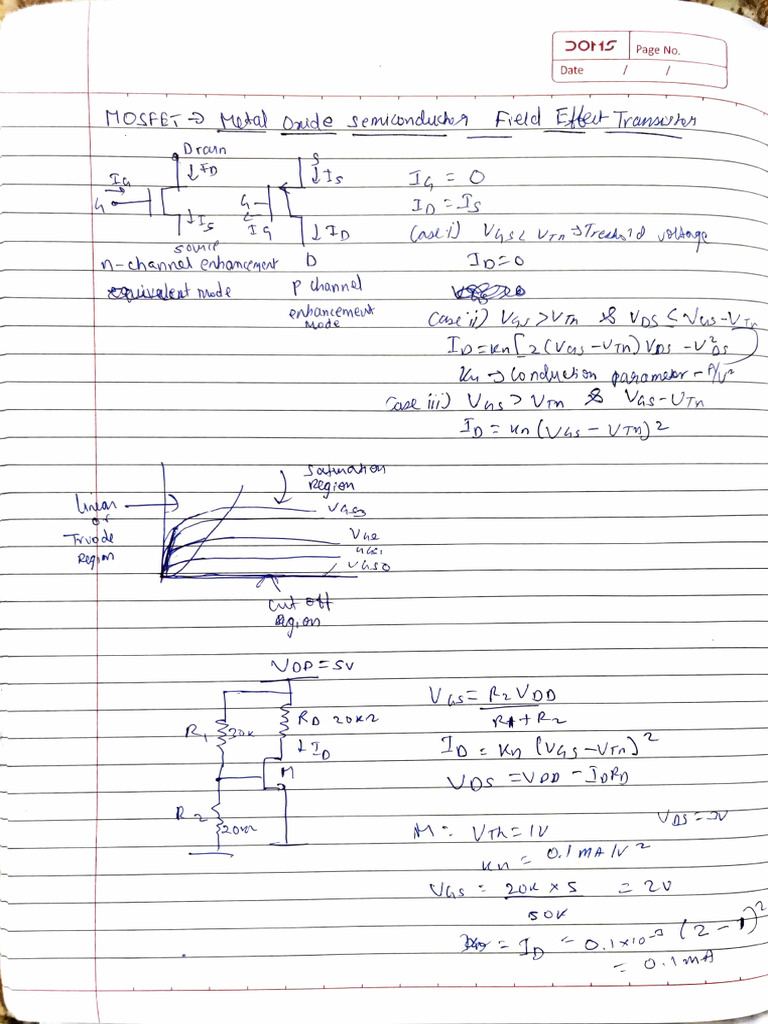 DOMS
Page No.
Date / /
MOSFET → Metal Oxide Semiconductor Field Effect Transistor
Drain
↓ID
IG
G
↓IS
source
n-channel enhancement
mode
S
↓IS
G
IG
↓ID
D
P channel
enhancement
mode
IG = 0
ID = IS
Case i) VGS < VTn → Treshold voltage
ID = 0
Case ii) VGS > VTn & VDS ≤ VGS - VTn
ID = kn[2(VGS - VTn) VDS - V²DS
kn → Conduction parameter - A/V²
Case iii) VGS > VTn & VGS - VTn
ID = kn (VGS - VTn)2
Linear
or
Triode
Region
Saturation
Region
VGS3
VGS2
VGS1
VGS0
Cut off
Region
VDD = 5V
R1
RD 20kΩ
↓ID
M
R2
20kΩ
VGS = R2 VDD
R1 + R2
ID = kn (VGS - VTn)²
VDS = VDD - IDRD
VDS = 3V
M: VTn = 1V
kn = 0.1 mA/V²
VGS = 20k x 5 = 2V
50k
= ID = 0.1x10⁻³ (2 - 1)²
= 0.1mA